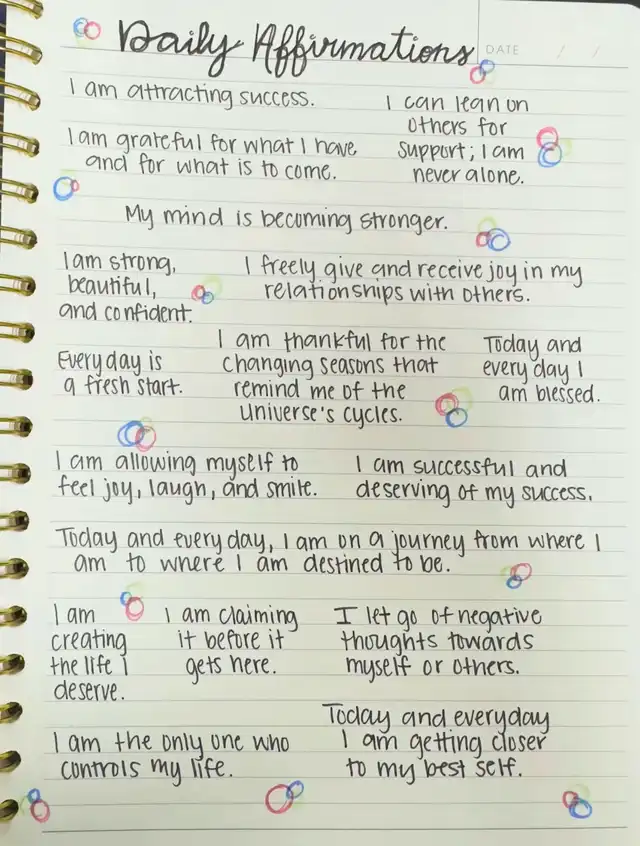 Daily Affirmations
DATE / /
I am attracting success.
I can lean on
others for
support; I am
never alone.
I am grateful for what I have
and for what is to come.
My mind is becoming stronger.
I am strong,
beautiful,
and confident.
I freely give and receive joy in my
relationships with others.
Everyday is
a fresh start.
I am thankful for the
changing seasons that
remind me of the
universe's cycles.
Today and
every day I
am blessed.
I am allowing myself to
feel joy, laugh, and smile.
I am successful and
deserving of my success.
Today and every day, I am on a journey from where I
am to where I am destined to be.
I am
creating
the life I
deserve.
I am claiming
it before it
gets here.
I let go of negative
thoughts towards
myself or others.
I am the only one who
controls my life.
Today and everyday
I am getting closer
to my best self.